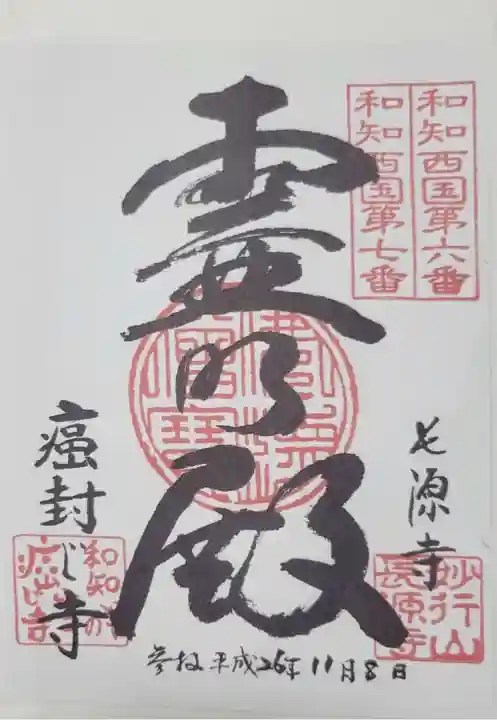 和知西国第六番
和知西国第七番
長源寺
霊明殿
癌封じ寺
妙行山
長源寺
和知の
癌封寺
参拝 平成26年11月8日